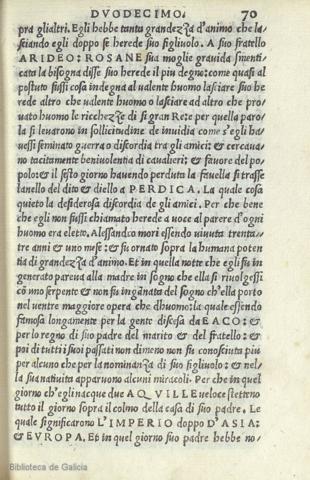 DVODECIMO. 70
pra glialtri. Egli hebbe tanta grandezza d'animo che la
sciando egli doppo se herede suo figliuolo. A suo fratello
ARIDEO: ROSANE sua moglie gravida smenti-
cata la bisogna disse suo herede il piu degno: come quasi al
postuto fussi cosa indegna al valente huomo lasciare suo he
rede altro che valente huomo o lasciare ad altro che pro
vato huomo le ricchezze di si gran Re: e per quella paro/
la si levarono in sollicitudine de invidia come s'egli ha/
vessi seminato guerra o discordia tra gli amici: & cercava/
no tacitamente benivolentia di cavalieri: & favore del po/
polo: & il sesto giorno havendo perduta la favella si trasse
lanello del dito & diello a PERDICA. La quale cosa
quieto la desiderosa discordia de gli amici. Per che bene
che egli non fussi chiamato herede a voce al parere d'ogni
huomo era eletto. Alessandro mori essendo vivuta trenta/
tre anni & uno mese: & fu ornato sopra la humana poten
tia di grandezza d'animo. Et in quella notte che egli fu in
generato pareva alla madre in sogno che ella si rivolgessi
cō uno serpente & non fu ingānata del sogno ch'ella porto
nel ventre maggiore opera che dhuomo: la quale essendo
famosa longamente per la gente discesa da EACO: &
per lo regno di suo padre del marito & del fratello: &
poi di tutti i suoi passati non dimeno non fu conosciuta piu
per alcuno che per la nominanza di suo figliuolo: & nel/
la sua natiuita apparvono alcuni miracoli. Per che in quel
giorno ch'egli nacque due AQVILLE veloce stetteno
tutto il giorno sopra il colmo della casa di suo padre. Le
quale significarono L'IMPERIO doppo D'ASIA:
& EVROPA. Et in quel giorno suo padre hebbe no/
Biblioteca de Galicia